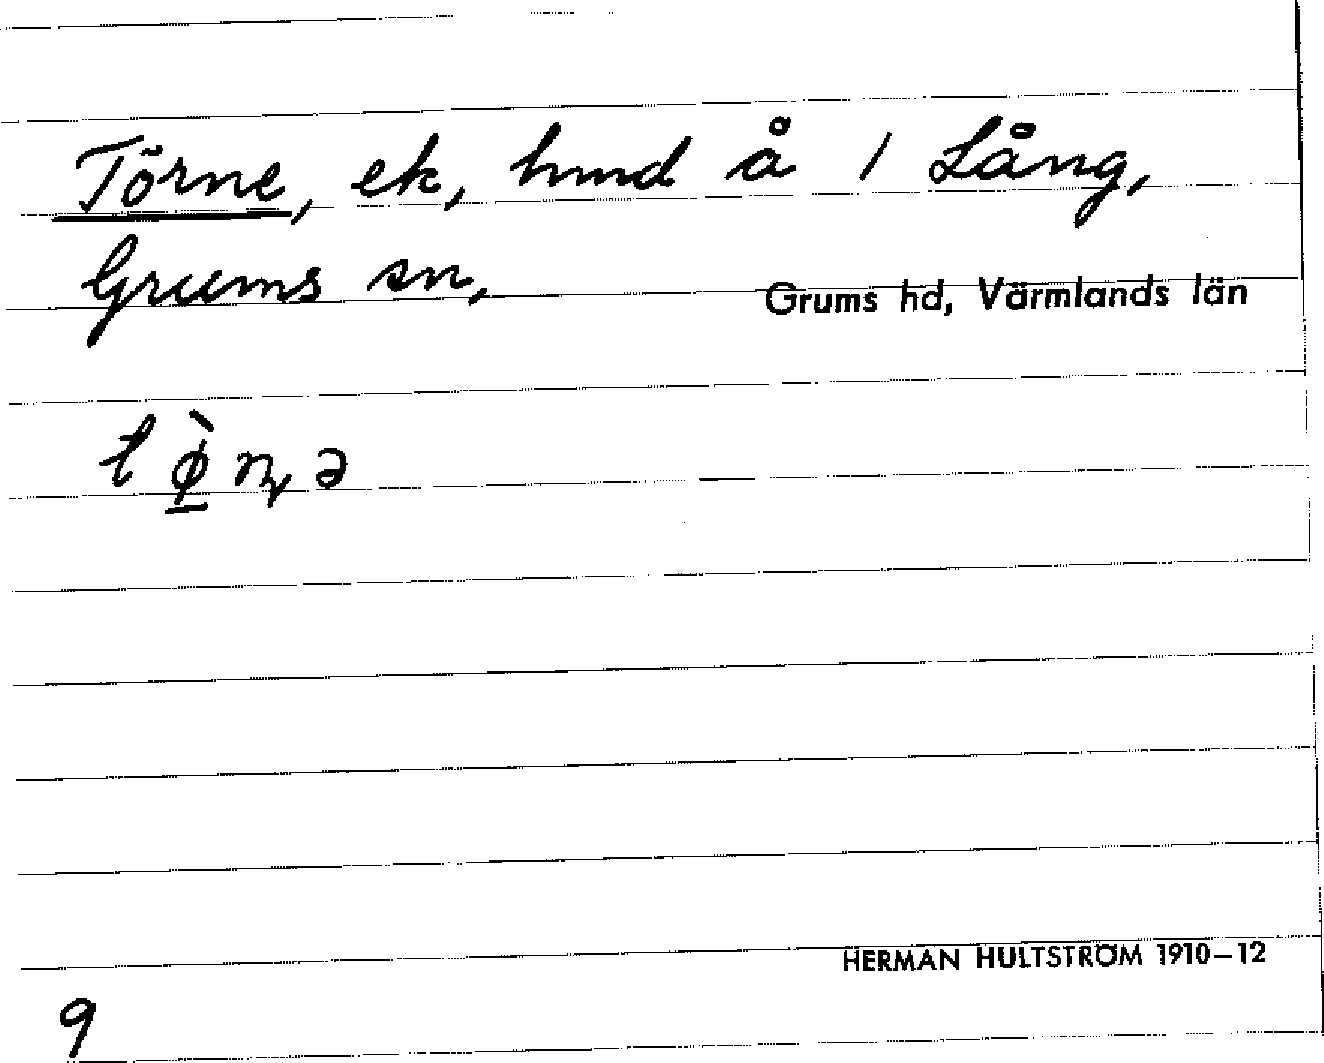 Törne, ek, hmd å 1 Lång,
Grums sn, Grums hd, Värmlands län
t ø̲̀ ɳ ə
HERMAN HULTSTRÖM 1910–12
9